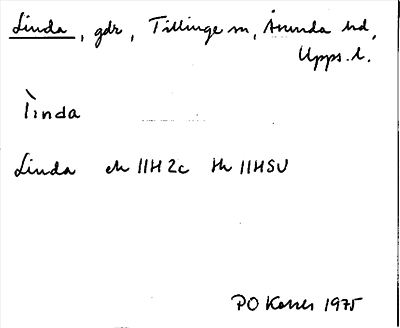 Linda, gdr, Tillinge sn, Åsunda hd,
Upps. l.
Lìnda
Linda ek 11H2c tk 11HSV
PO 1975